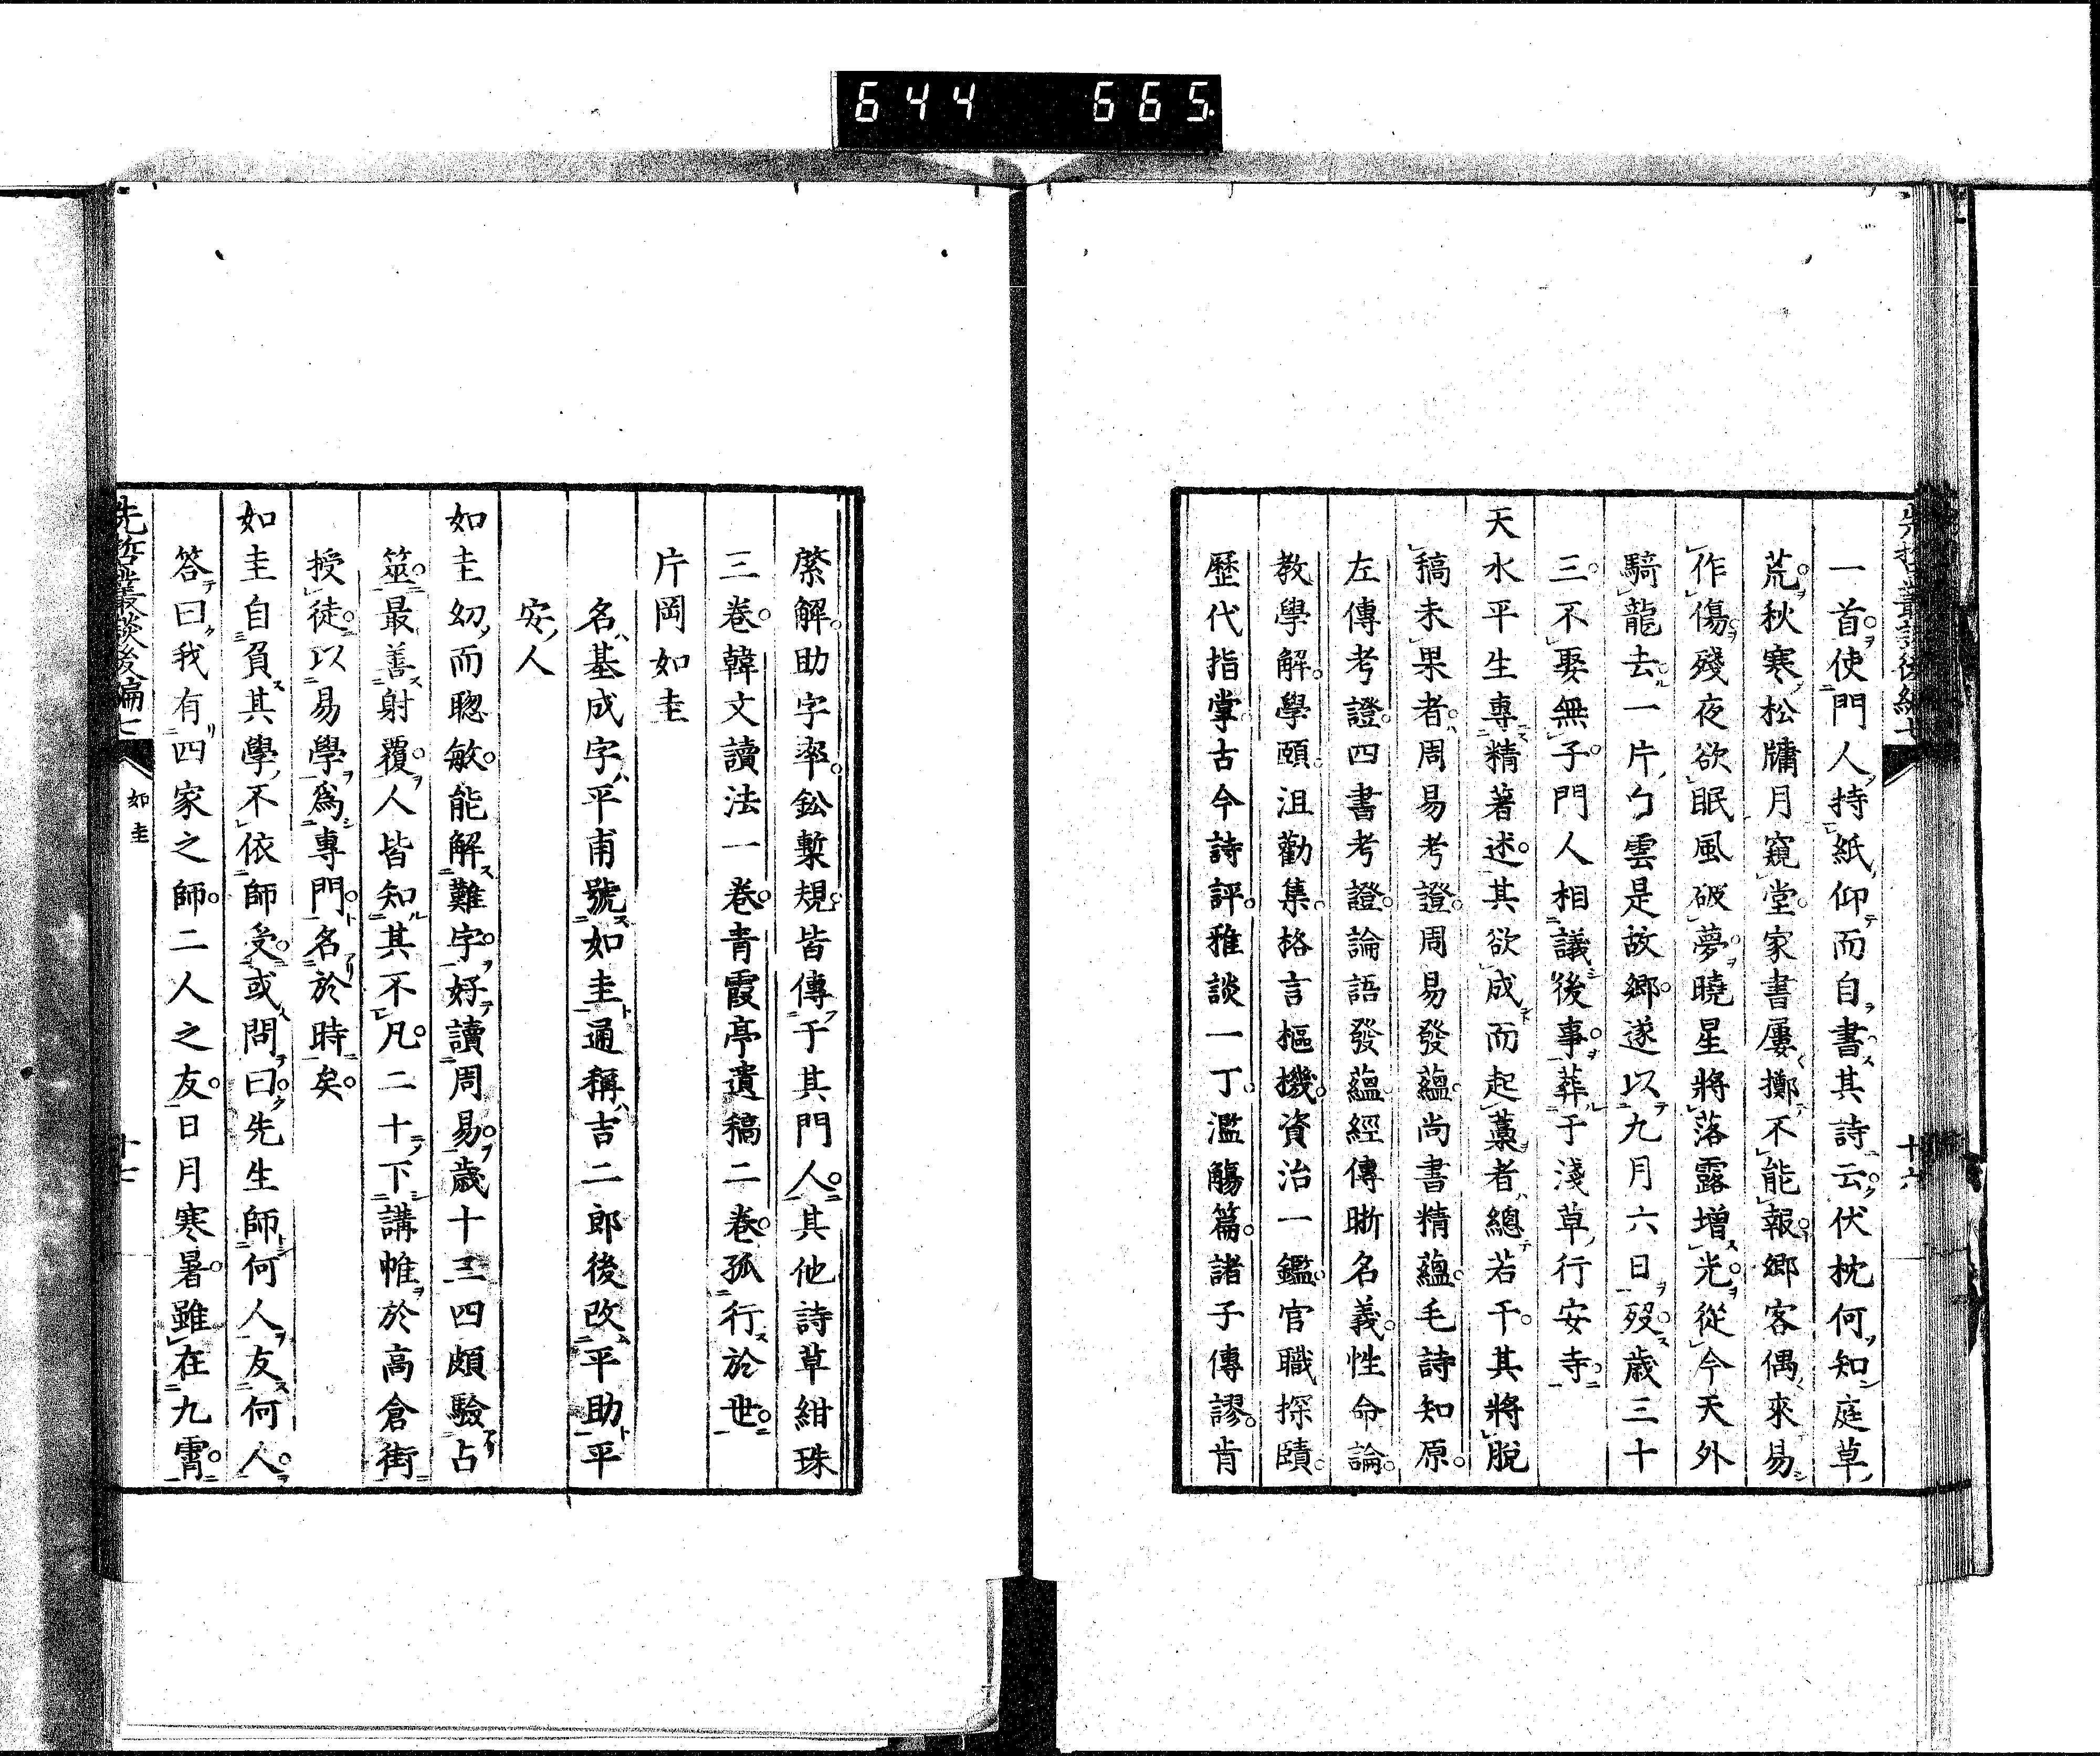 644 665
先哲叢談後編七 十六
一首使門人持紙仰而自書其詩云伏枕何知庭草
荒秋寒松牗月窺堂家書屢擲不能報鄉客偶來易
作傷殘夜欲眠風破夢曉星將落露增光從今天外
騎龍去一片勹雲是故鄉遂以九月六日歿歲三十
三不娶無子門人相議後事葬于淺草行安寺
天水平生專精著述其欲成而起藁者總若干其將脫
稿未果者周易考證周易發蘊尚書精蘊毛詩知原
左傳考證四書考證論語發蘊經傳晣名義性命論
教學解學頤沮勸集格言樞機資治一鑑官職探賾
歷代指掌古今詩評雅談一丁濫觴篇諸子傳謬肯
綮解助字率鈆槧規皆傳于其門人其他詩草紺珠
三卷韓文讀法一卷青霞亭遺稿二卷孤行於世
片岡如圭
名基成字平甫號如圭通稱吉二郎後改平助平
安人
如圭幼而聰敏能解難字好讀周易歲十三四頗驗占
筮最善射覆人皆知其不凡二十下講帷於高倉街
授徒以易學爲專門名於時矣
如圭自負其學不依師受或問曰先生師何人友何人
答曰我有四家之師二人之友日月寒暑雖在九霄
先哲叢談後編七 如圭 十七